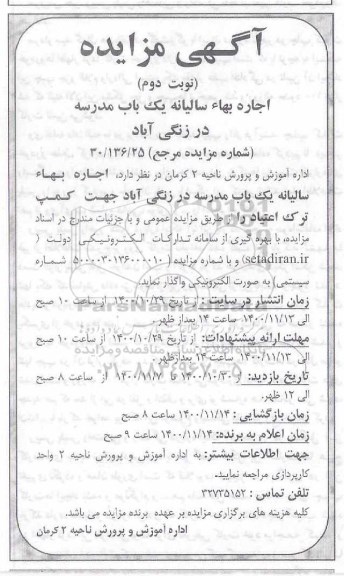 آگهی مزایده
(نوبت دوم)
اجاره بهاء سالیانه یک باب مدرسه
در زنگی آباد
(شماره مزایده مرجع) ۳۰/۱۳۶/۲۵
اداره آموزش و پرورش ناحیه ۲ کرمان در نظر دارد، اجاره بهاء
سالیانه یک باب مدرسه در زنگی آباد جهت کمپ
ترک اعتیاد را از طریق مزایده عمومی و با جزئیات مندرج در اسناد
مزایده، با بهره گیری از سامانه تدارکات الکترونیکی دولت (
setadiran.ir) و با شماره مزایده (۵۰۰۰۰۳۰۱۳۶۰۰۰۰۱۰ شماره
سیستمی) به صورت الکترونیکی واگذار نماید.
زمان انتشار در سایت : از تاریخ ۱۴۰۰/۱۰/۲۹ از ساعت ۱۰ صبح
الی ۱۴۰۰/۱۱/۱۳ ساعت ۱۴ بعداز ظهر.
مهلت ارائه پیشنهادات: از تاریخ ۱۴۰۰/۱۰/۲۹ از ساعت ۱۰ صبح
الی ۱۴۰۰/۱۱/۱۳ ساعت ۱۴ بعدازظهر.
تاریخ بازدید: از ۱۴۰۰/۱۰/۳۰ تا ۱۴۰۰/۱۱/۷ از ساعت ۸ صبح
الی ۱۲ ظهر.
زمان بازگشایی : ۱۴۰۰/۱۱/۱۴ ساعت ۸ صبح
زمان اعلام به برنده: ۱۴۰۰/۱۱/۱۴ ساعت ۹ صبح
جهت اطلاعات بیشتر: به اداره آموزش و پرورش ناحیه ۲ واحد
کارپردازی مراجعه نمایید.
تلفن تماس : ۳۲۷۳۵۱۵۲
کلیه هزینه های برگزاری مزایده بر عهده برنده مزایده می باشد.
اداره آموزش و پرورش ناحیه ۲ کرمان